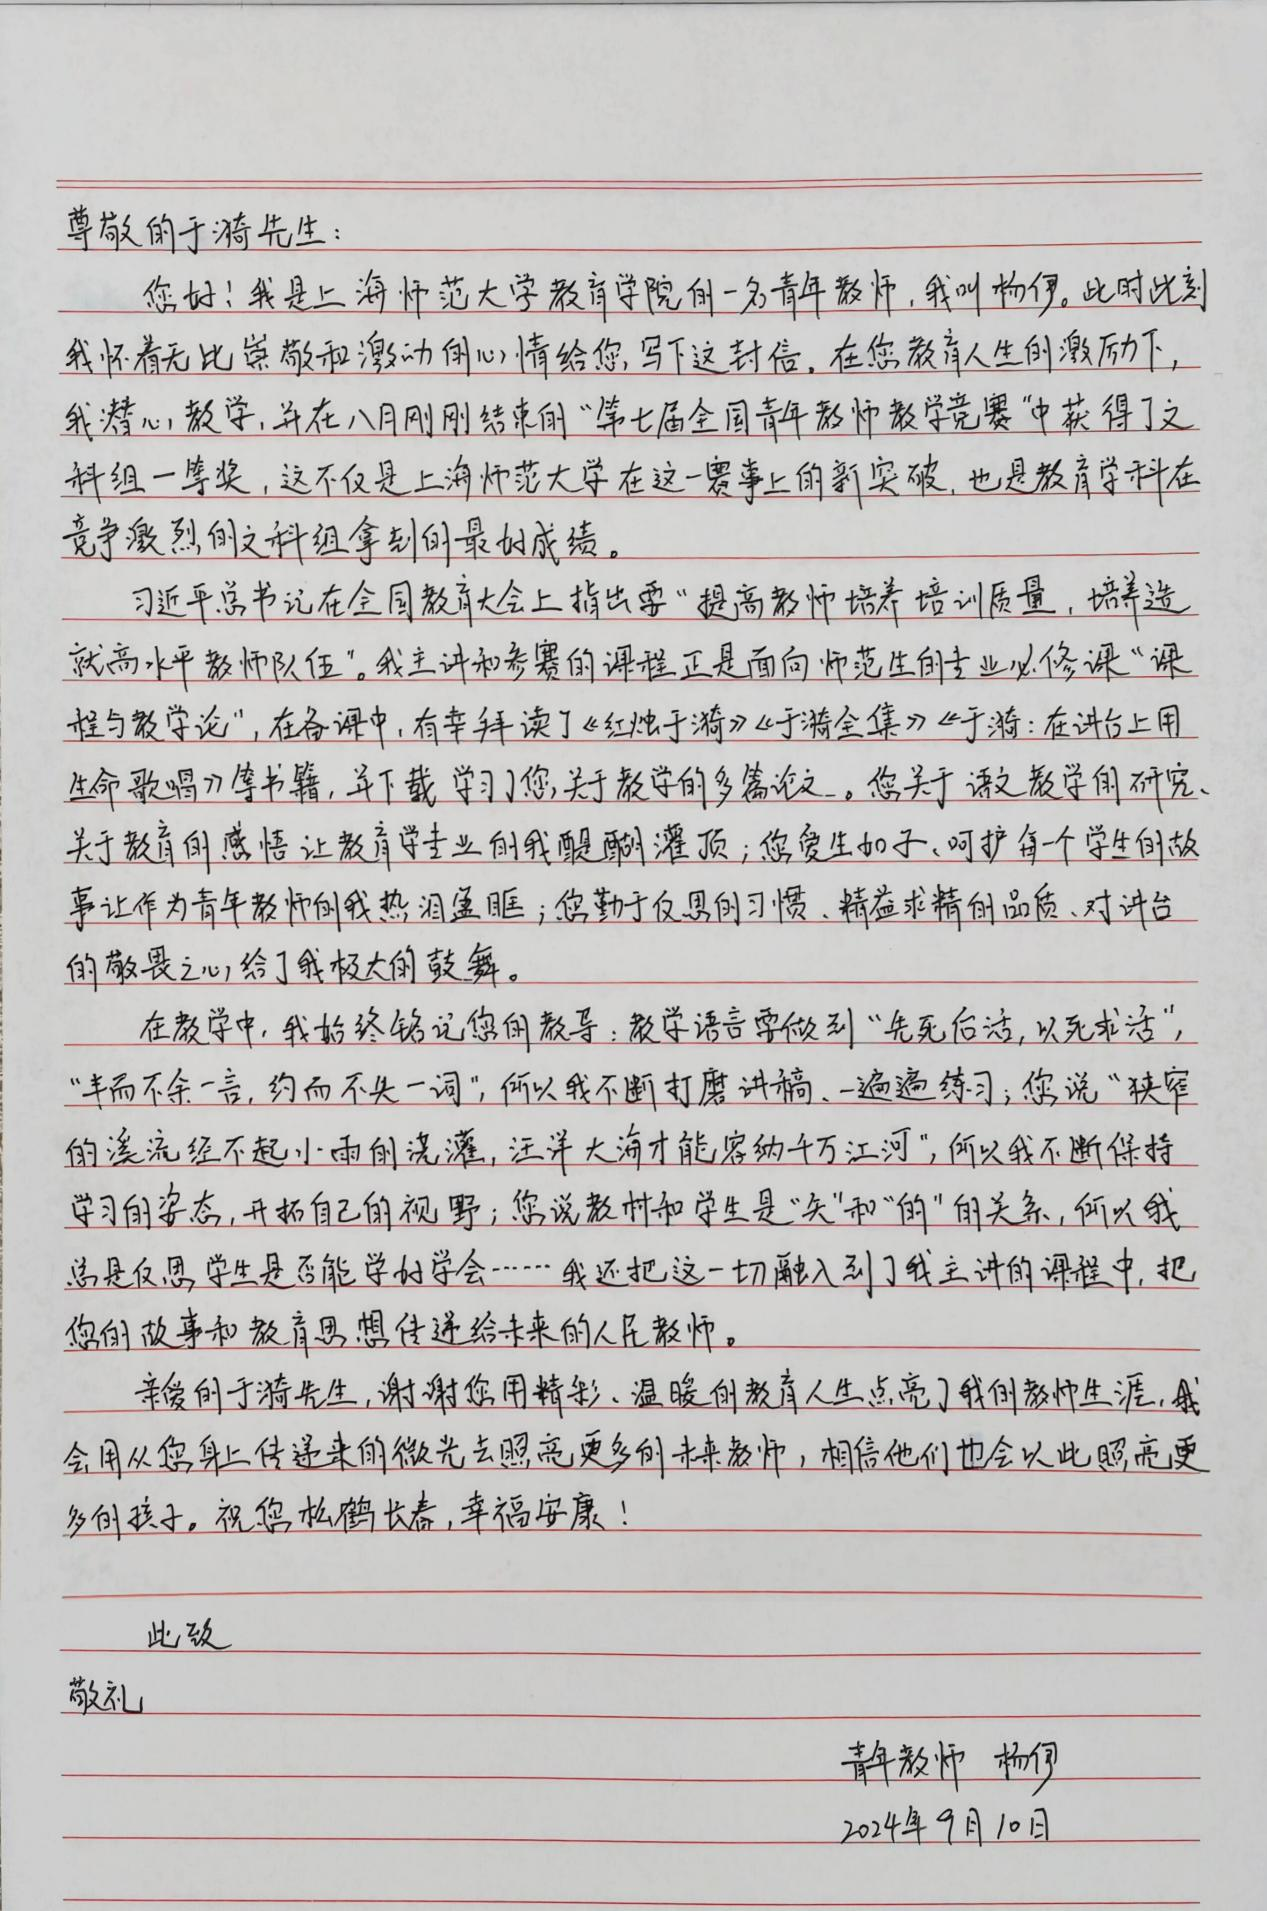 尊敬的于漪先生：
您好！我是上海师范大学教育学院的一名青年教师，我叫杨伊。此时此刻
我怀着无比崇敬和激动的心情给您写下这封信。在您教育人生的激励下，
我潜心教学，并在八月刚刚结束的“第七届全国青年教师教学竞赛”中获得了文
科组一等奖，这不仅是上海师范大学在这一赛事上的新突破，也是教育学科在
竞争激烈的文科组拿到的最好成绩。
习近平总书记在全国教育大会上指出要“提高教师培养培训质量，培养造
就高水平教师队伍”。我主讲和参赛的课程正是面向师范生的专业必修课“课
程与教学论”，在备课中，有幸拜读了《红烛于漪》《于漪全集》《于漪：在讲台上用
生命歌唱》等书籍，并下载学习了您关于教学的多篇论文。您关于语文教学的研究、
关于教育的感悟让教育学专业的我醍醐灌顶；您爱生如子、呵护每一个学生的故
事让作为青年教师的我热泪盈眶；您勤于反思的习惯、精益求精的品质、对讲台
的敬畏之心，给了我极大的鼓舞。
在教学中，我始终铭记您的教导：教学语言要做到“先死后活，以死求活”，
“丰而不余一言，约而不失一词”，所以我不断打磨讲稿、一遍遍练习；您说“狭窄
的溪流经不起小雨的浇灌，汪洋大海才能容纳千万江河”，所以我不断保持
学习的姿态，开拓自己的视野；您说教材和学生是“矢”和“的”的关系，所以我
总是反思学生是否能学好学会……我还把这一切融入到了我主讲的课程中，把
您的故事和教育思想传递给未来的人民教师。
亲爱的于漪先生，谢谢您用精彩、温暖的教育人生点亮了我的教师生涯，我
会用从您身上传递来的微光去照亮更多的未来教师，相信他们也会以此照亮更
多的孩子。祝您松鹤长春，幸福安康！
此致
敬礼
青年教师 杨伊
2024年9月10日